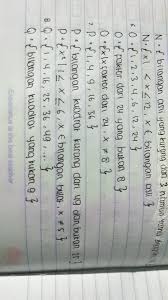 N = { bilangan asli yang kurang dari 3 namun yang
N = { x | < x ≤ 12, x ∈ bilangan asli }
6. O = { 1, 2, 3, 4, 6, 12, 24 }
O = { Faktor dari 24 yang bukan 8 }
O = { x | x faktor dari 24, x ≠ 8 }
7. P = { 1, 4, 9, 16, 36 }
P = { bilangan kuadrat kurang dari 49 dan bukan }
P = { x² | 1 ≤ x ≤ 6, x ∈ bilangan bulat, x ≠ 5 }
8. Q = { 1, 4, 16, 25, 36, 49, ... }
Q = { bilangan kuadrat yang bukan 9 }
is the best